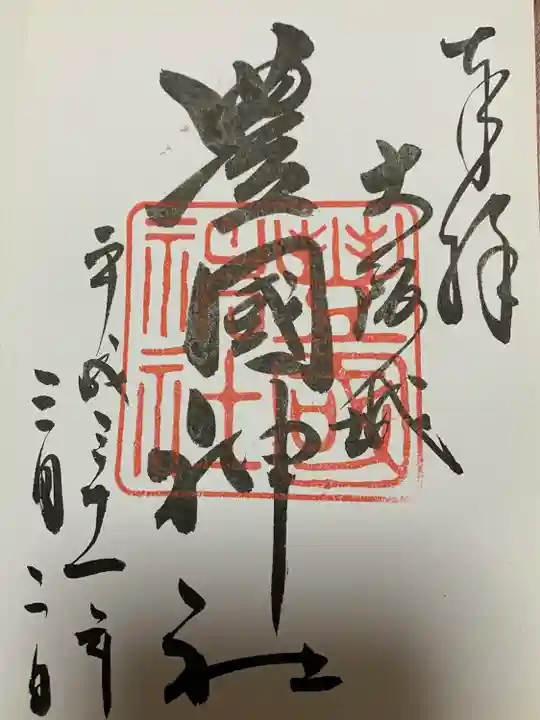 奉拝
大阪城
豊國神社
平成三十一年
三月二日